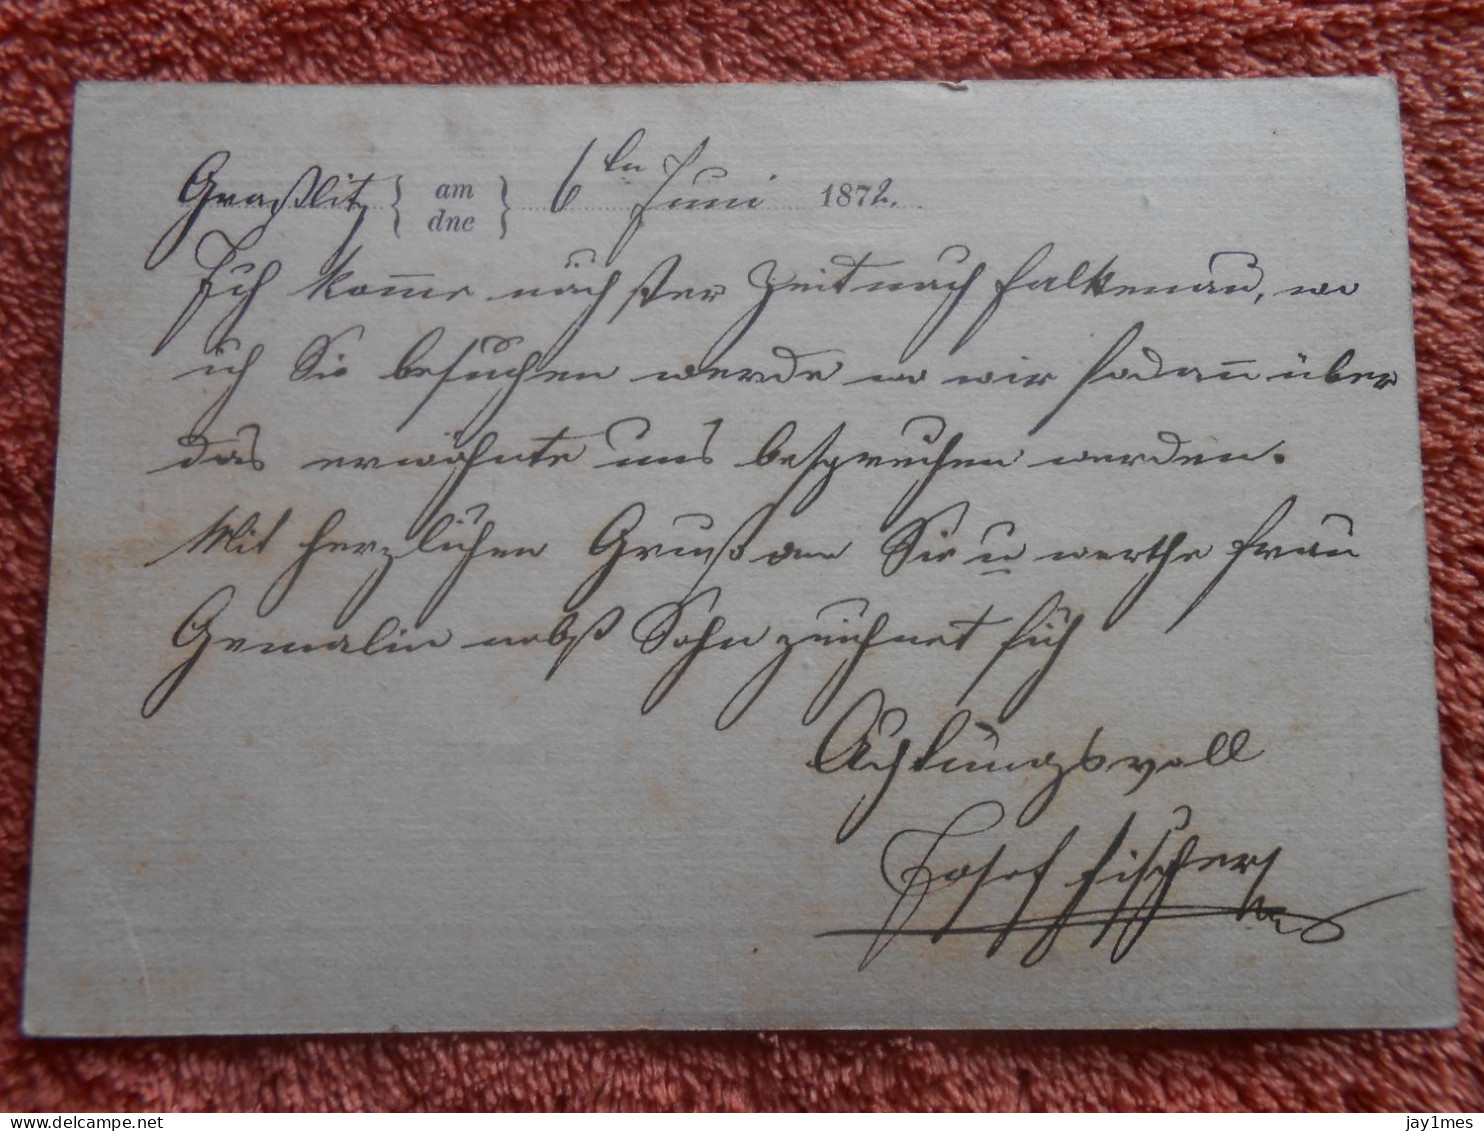 Graßlitz { am dne } 6ten Juni 1872.
Ich kom̅e nächster Zeit nach Falkenau, wo
ich Sie besuchen werde wo wir sodan̅ über
das erwähnte uns besprechen werden.
Mit herzlichen Gruß an Sie u werthe Frau
Gemalin nebst Sohn zeichnet sich
Achtungsvoll
Josef Fischer
delcampe.net
jay1mes